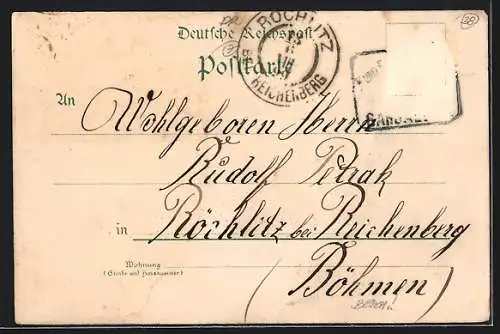 Deutsche Reichspost
Postkarte
RÖCHLITZ
REICHENBERG
An Wohlgeboren Herrn
Rudolf Petrak
in Röchlitz bei Reichenberg
Wohnung
(Straße und Hausnummer)
(Böhmen)